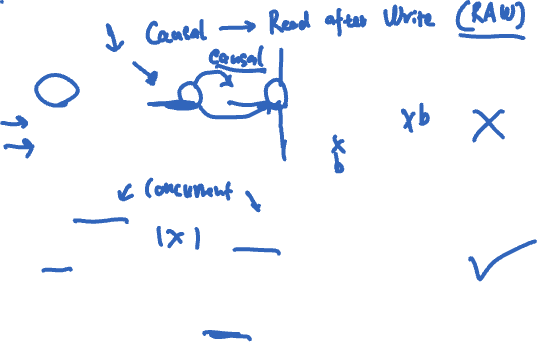 Causal → Read after Write (RAW)
causal
xb
x
b
Concurrent
|x|